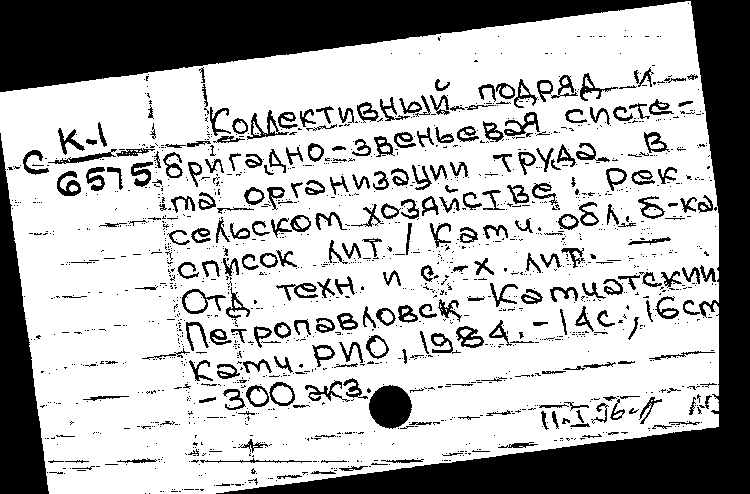 С К-1
6575
Коллективный подряд и
бригадно-звеньевая систе-
ма организации труда в
сельском хозяйстве: Рек.
список лит. / Камч. обл. б-ка.
Отд. техн. и с.-х. лит. —
Петропавловск-Камчатский:
Камч. РИО, 1984. - 14с.; 16см
- 300 экз.
11.I 96